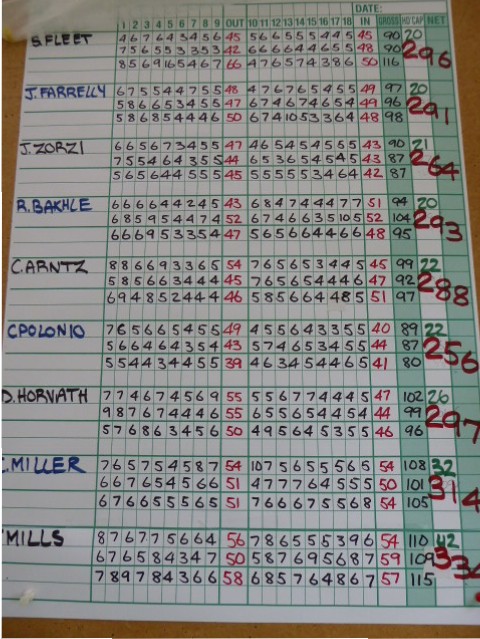 DATE:
1 2 3 4 5 6 7 8 9 OUT 10 11 12 13 14 15 16 17 18 IN GROSS HD'CAP NET
S. FLEET 4 6 7 6 4 3 4 5 6 45 5 6 6 5 5 5 4 4 5 45 90 20
7 5 6 5 5 3 5 3 3 42 6 6 6 6 4 4 6 5 5 48 90 296
8 5 6 9 16 5 4 6 7 66 4 7 6 5 7 4 3 8 6 50 116
J. FARRELLY 6 7 5 5 4 4 7 5 5 48 4 7 6 7 6 5 4 5 5 49 97 20
5 8 6 6 5 3 4 5 5 47 6 7 4 6 7 4 6 5 4 49 96 291
5 8 6 8 5 4 4 4 6 50 6 7 4 10 5 3 3 6 4 48 98
J. ZORZI 6 6 5 6 7 3 4 5 5 47 4 6 5 4 5 4 5 6 5 43 90 21
7 5 5 4 6 4 3 5 5 44 6 5 3 6 5 4 5 4 5 43 87 264
5 6 5 6 4 4 5 5 5 45 5 5 5 5 5 3 4 6 4 42 87
R. BAKHLE 6 6 6 6 4 4 2 4 5 43 6 8 4 7 4 4 4 7 7 51 94 20
6 8 5 9 5 4 4 7 4 52 6 7 4 6 6 3 5 10 5 52 104 293
6 6 6 9 5 3 3 5 4 47 5 6 5 6 6 4 4 6 6 48 95
C. ARNTZ 8 8 6 6 9 3 3 6 5 54 7 6 5 6 5 3 4 4 5 45 99 22
5 8 5 6 6 3 4 4 4 45 7 6 5 6 5 4 4 4 6 47 92 288
6 9 4 8 5 2 4 4 4 46 5 8 5 6 6 4 4 8 5 51 97
C POLONIO 7 6 5 6 6 5 4 5 5 49 4 5 5 6 4 3 3 5 5 40 89 22
5 6 6 4 6 4 3 5 4 43 5 7 4 6 5 3 4 5 5 44 87 256
5 5 4 4 3 4 4 5 5 39 4 6 3 4 5 4 4 6 5 41 80
D. HORVATH 7 7 4 6 7 4 5 6 9 55 5 5 6 7 7 4 4 4 5 47 102 26
9 8 7 6 7 4 4 4 6 55 6 5 5 6 5 4 4 5 4 44 99 297
5 7 6 8 6 3 4 5 6 50 4 9 5 6 4 5 3 5 5 46 96
MILLER 7 6 5 7 5 4 5 8 7 54 10 7 5 6 5 5 5 6 5 54 108 32
6 6 7 6 5 4 5 6 6 51 4 7 7 7 6 4 5 5 5 50 101 314
6 7 6 6 5 5 5 6 5 51 7 6 6 6 7 5 5 6 8 54 105
MILLS 8 7 6 7 7 5 6 6 4 56 7 8 6 5 5 5 3 9 6 54 110 42
6 7 6 5 8 4 3 4 7 50 5 8 7 6 9 5 6 8 7 59 109
7 8 9 7 8 4 3 6 6 58 6 8 5 7 6 4 8 6 7 57 115